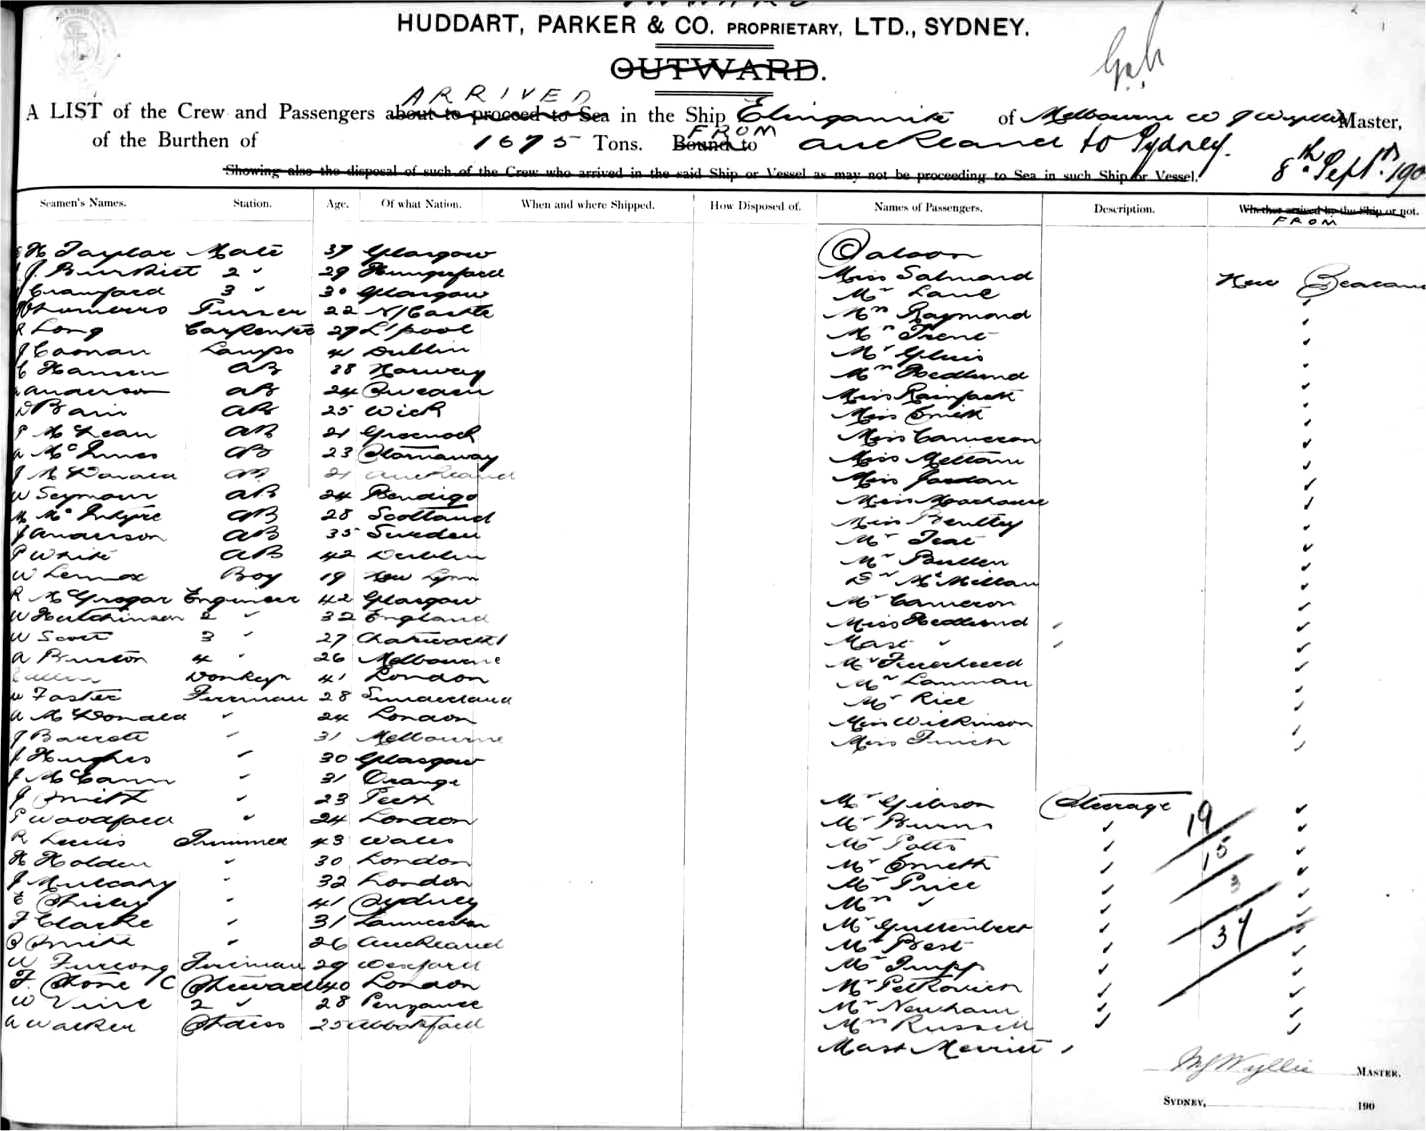 HUDDART, PARKER & CO. PROPRIETARY, LTD., SYDNEY.
OUTWARD.
ARRIVED
A LIST of the Crew and Passengers about to proceed to Sea in the Ship Elingamite of Melbourne W J Wyllie Master,
FROM
of the Burthen of 1675 Tons. Bound to Auckland to Sydney.
8th Septr. 190
Showing also the disposal of such of the Crew who arrived in the said Ship or Vessel as may not be proceeding to Sea in such Ship or Vessel.
Seamen's Names. Station. Age. Of what Nation. When and where Shipped. How Disposed of. Names of Passengers. Description. Whether arrived by the Ship or not.
FROM
H Taylor Mate 37 Glasgow Saloon
J Birkett 2 " 29 Hungerford Miss Salmond New Zealand
J Crawford 3 " 30 Glasgow Mr Lane
Turner 22 N/Castle Mrs Raymond
R Long Carpenter 27 L'pool Mrs Trent
J Coonan Lamps 41 Dublin Mr
C Hansen AB 38 Norway Mrs Hedlund
Anderson AB 24 Sweden Miss
D Bain AB 25 Wick Miss Smith
P McLean AB 21 Greenock Miss Cameron
A McInnes AB 23 Stornaway Miss
J McDonald AB 21 Auckland Miss Jordan
W Seymour AB 24 Bendigo Miss
M McIntyre AB 28 Scotland Miss Bentley
J Anderson AB 35 Sweden Mr
P White AB 42 Dublin Mr
W Lennox Boy 19 Dr McMillan
R McGregor Engineer 42 Glasgow Mr Cameron
W Hutchinson 2 " 32 England Miss Hedlund
W Scott 3 " 27 Mast "
A Burton 4 " 26 Melbourne Mr
Donkeyn 41 London Mr
W Foster Fireman 28 Sunderland Mr Rice
A McDonald " 24 London Miss Wilkinson
J Barrett " 31 Melbourne Miss Finch
J Hughes " 30 Glasgow
J McCann " 31 Orange
J Smith " 23 Perth Mr Gibson Steerage
P Woodford " 24 London Mr Burns " 19
R Lewis Trimmer 43 Wales Mr Potts " 15
H Holden " 30 London Mr Smith " 3
J Mulcahy " 32 London Mr Price "
E " 41 Sydney Mrs " " 37
F Clarke " 31 Launceston Mr Guttenbert "
Smith " 26 Auckland Mr Best "
W Furlong Fireman 29 Wexford Mr "
F Stone Steward 40 London Mr Petkovich "
W Vine 2 " 28 Penzance Mr Newham "
A Walker Stdess 25 Mrs Russell "
Mast Merritt
W J Wyllie MASTER.
SYDNEY, 190